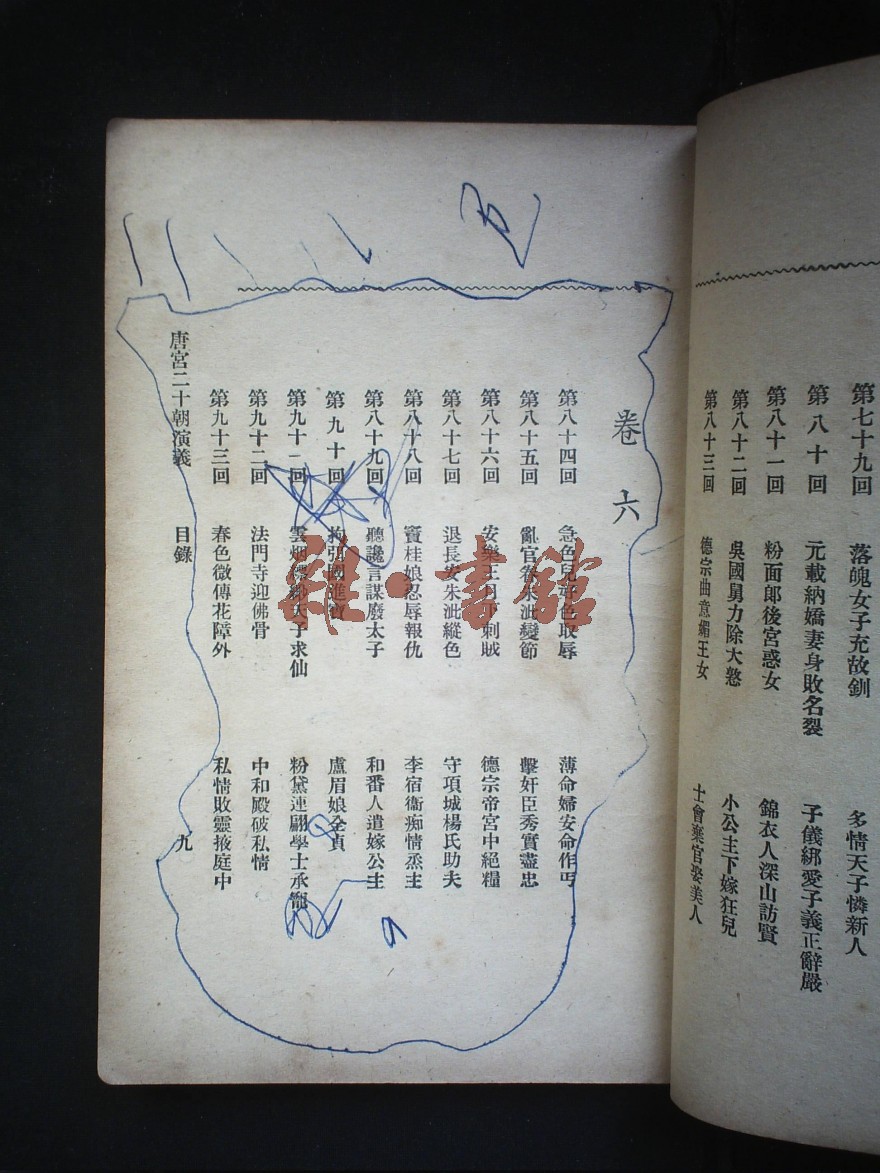 第七十九回 落魄女子充故釧 多情天子憐新人
第八十回 元載納嬌妻身敗名裂 子儀綁愛子義正辭嚴
第八十一回 粉面郎後宮惑女 錦衣人深山訪賢
第八十二回 吳國舅力除大憝 小公主下嫁狂兒
第八十三回 德宗曲意媚王女 士會棄官娶美人
卷六
第八十四回 急色兒好色取辱 薄命婦安命作丐
第八十五回 亂宮眷朱泚變節 擊奸臣秀實盡忠
第八十六回 安樂王月下刺賊 德宗帝宮中絕糧
第八十七回 退長安朱泚縱色 守項城楊氏助夫
第八十八回 竇桂娘忍辱報仇 李宿衞痴情烝主
第八十九回 聽讒言謀廢太子 和番人遣嫁公主
第九十回 國進寶 盧眉娘全貞
第九十一回 雲烟縹緲天子求仙 粉黛連翩學士承寵
第九十二回 法門寺迎佛骨 中和殿破私情
第九十三回 春色微傳花障外 私情敗露掖庭中
唐宮二十朝演義 目錄 九
雅·書館